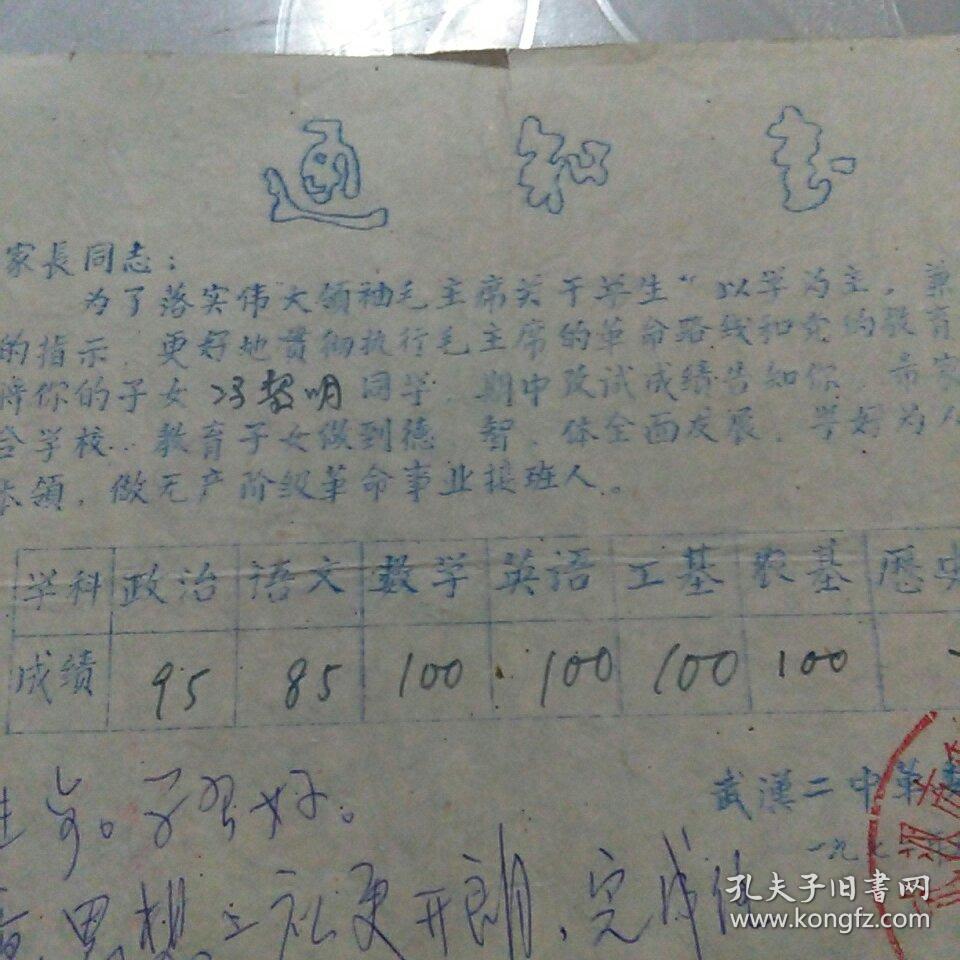 通知书
家長同志：
为了落实伟大领袖毛主席关于学生“以学为主，兼
的指示，更好地贯彻执行毛主席的革命路线和党的教育
你的子女冯 明同学，期中考试成绩告知你，希家
合学校，教育子女做到德、智、体全面发展，学好为人
本領，做无产阶级革命事业接班人。
学科 政治 语文 数学 英语 工基 农基 历史
成绩 95 85 100 100 100 100
武漢二中革
一九七
步。学习好。
思想上 更开朗，完成
孔夫子旧书网
www.kongfz.com